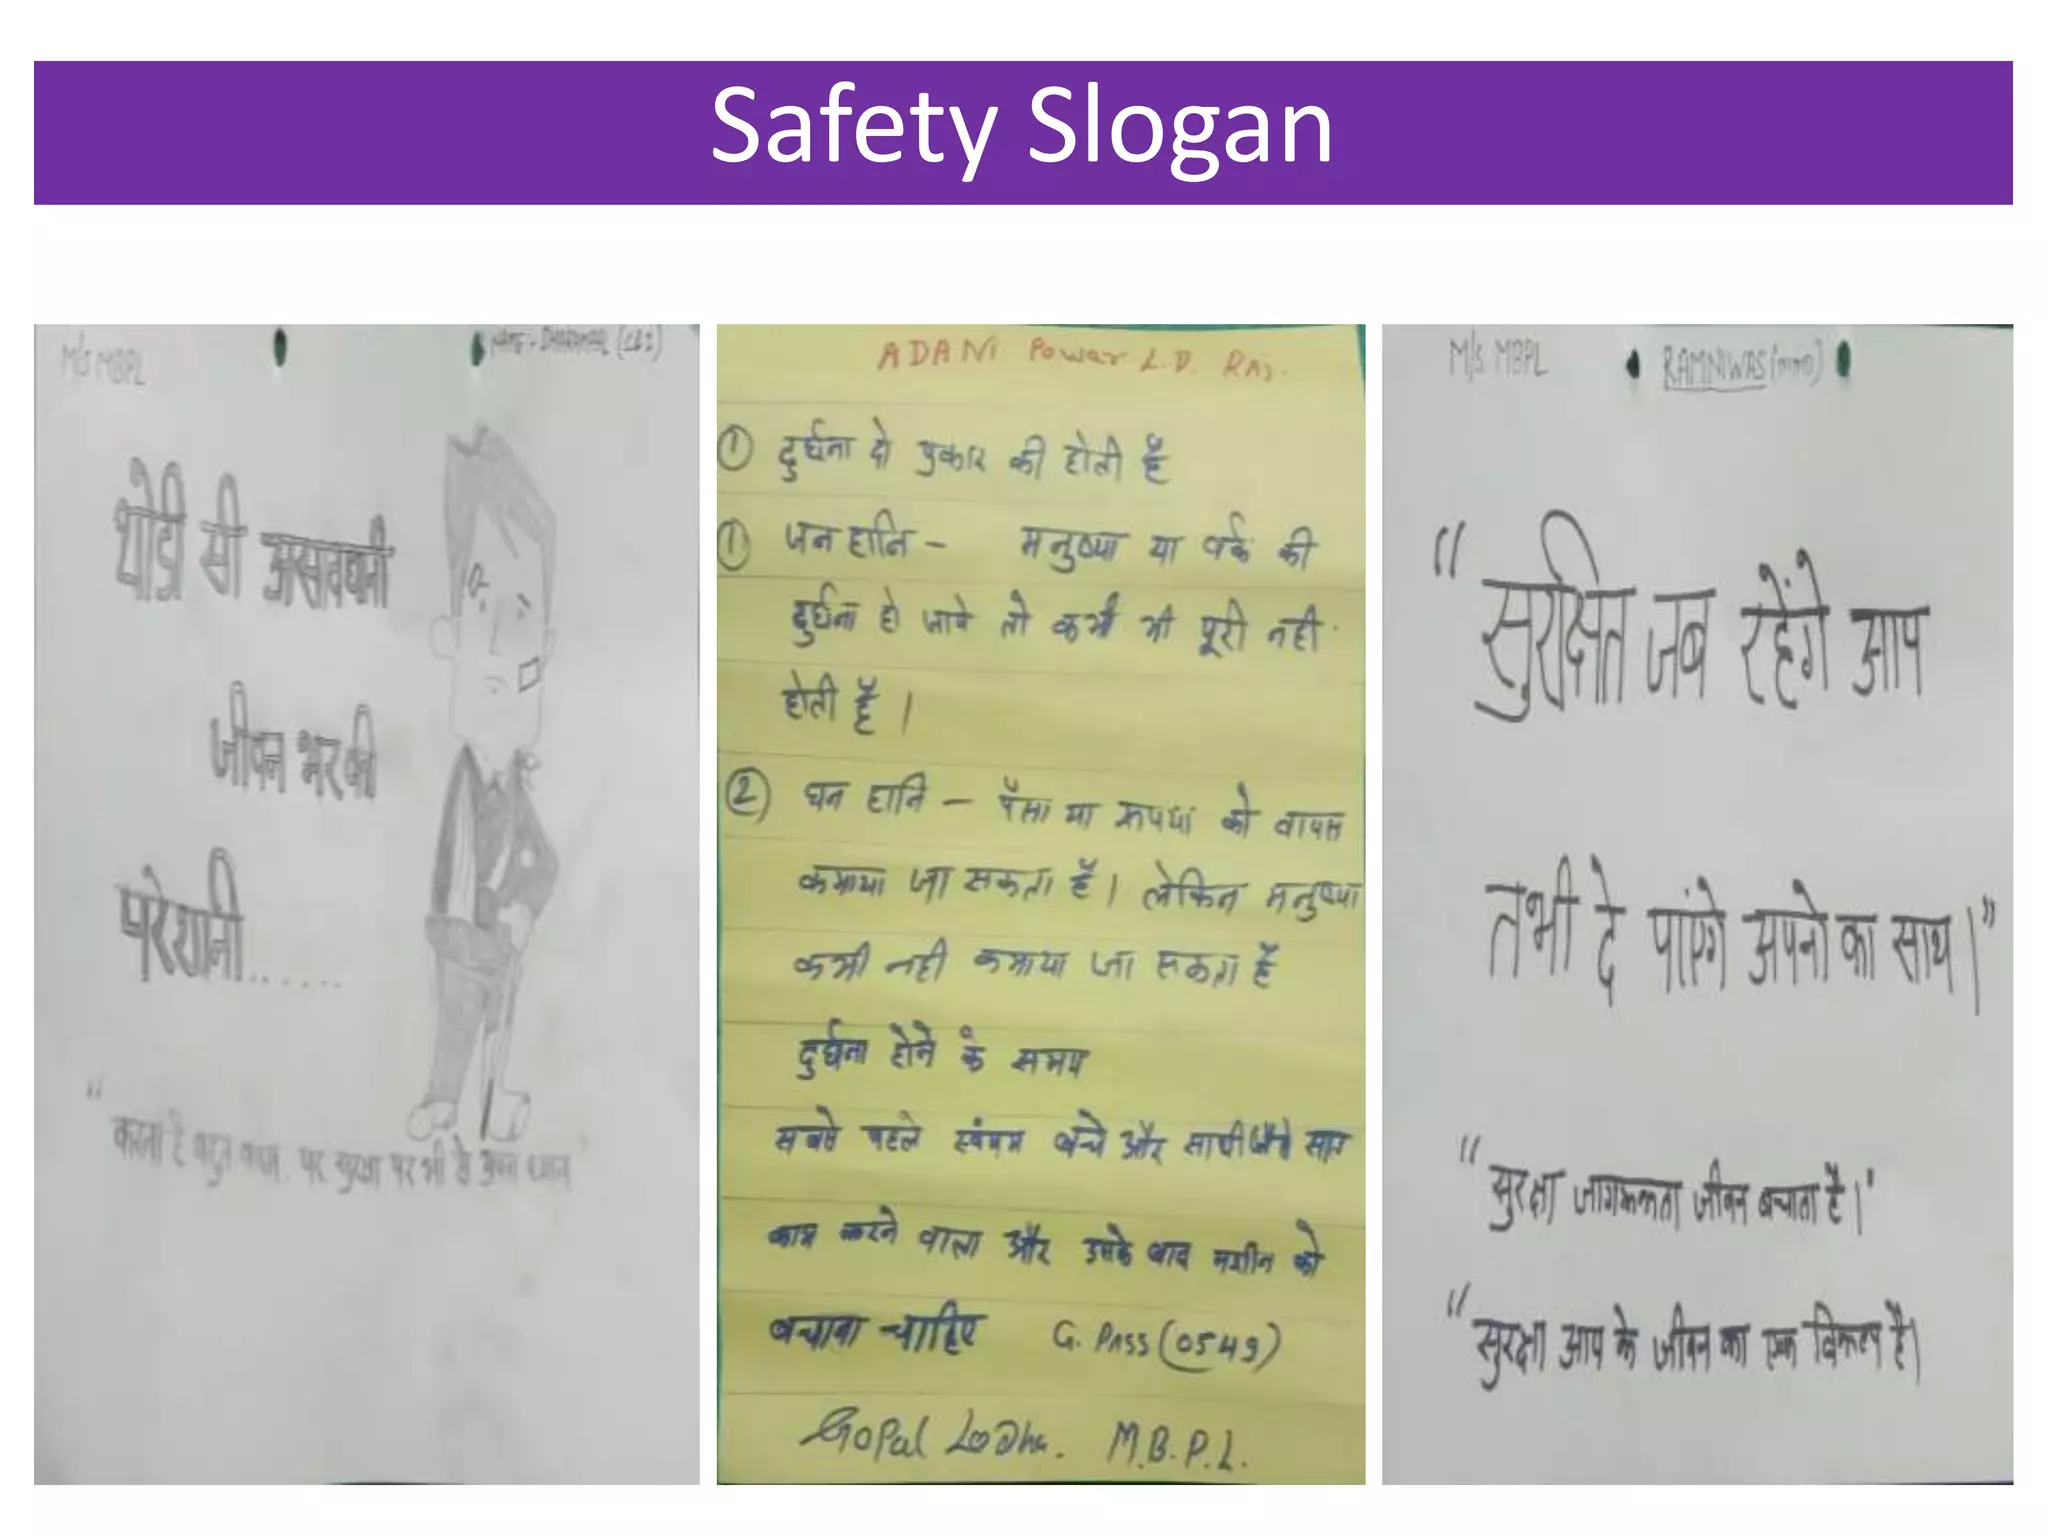 Safety Slogan
M/s MBPL
थोडी सी असावधानी
जीवन भर की
परेशानी......
"
करना है बहुत काम, पर सुरक्षा पर भी दे अपना ध्यान
ADANI Power L.D. RAJ.
① दुर्घना दो प्रकार की होती हैं
① जन हानि – मनुष्या या वर्क की
दुर्घना हो जाये तो कभी भी पूरी नही
होती हैं।
② धन हानि – पैसा या रूपया को वापस
कमाया जा सकता हैं। लेकिन मनुष्या
कभी नही कमाया जा सकता हैं
दुर्घना होने के समय
सबसे पहले स्वंयम बच्चे और साथी
काम करने वाला और उसके बाद मशीन को
बचाना चाहिए G. PASS (0549)
Gopal Lodha. M.B.P.L.
M/s MBPL RAMNIWAS
"सुरक्षित जब रहेंगे आप
तभी दे पांएगे अपनो का साथ।"
"सुरक्षा जागरूकता जीवन बचाता है।"
"सुरक्षा आप के जीवन का एक विकल्प है।